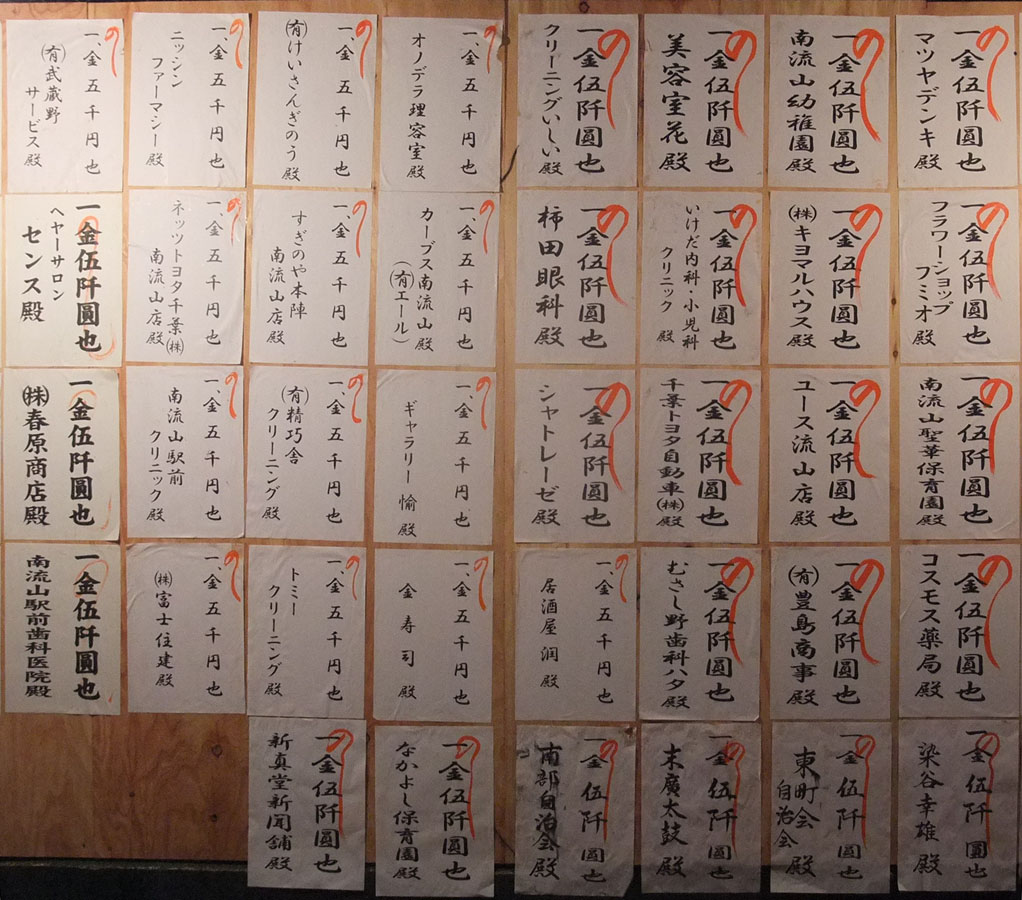 一金伍阡圓也
マツヤデンキ殿
一金伍阡圓也
南流山幼稚園殿
一金伍阡圓也
美容室花殿
一金伍阡圓也
クリーニングいしい殿
一、金五千円也
オノデラ理容室殿
一、金五千円也
(有)けいさんぎのう殿
一、金五千円也
ニッシン
ファーマシー殿
一、金五千円也
(有)武蔵野
サービス殿
一金伍阡圓也
フラワーショップ
フミオ殿
一金伍阡圓也
(株)キヨマルハウス殿
一金伍阡圓也
いけだ内科・小児科
クリニック殿
一金伍阡圓也
柿田眼科殿
一、金五千円也
カーブス南流山殿
(有)エール)
一、金五千円也
すぎのや本陣
南流山店殿
一、金五千円也
ネッツトヨタ千葉(株)
南流山店殿
一金伍阡圓也
ヘヤーサロン
センス殿
一金伍阡圓也
南流山聖華保育園殿
一金伍阡圓也
ユース流山店殿
一金伍阡圓也
千葉トヨタ自動車(株)殿
一金伍阡圓也
シャトレーゼ殿
一、金五千円也
ギャラリー愉殿
一、金五千円也
(有)精巧舎
クリーニング殿
一、金五千円也
南流山駅前
クリニック殿
一金伍阡圓也
(株)春原商店殿
一金伍阡圓也
コスモス薬局殿
一金伍阡圓也
(有)豊島商事殿
一金伍阡圓也
むさし野歯科ハタ殿
一、金五千円也
居酒屋润殿
一、金五千円也
金寿司殿
一、金五千円也
トミー
クリーニング殿
一、金五千円也
(株)富士住建殿
一金伍阡圓也
南流山駅前歯科医院殿
一金伍阡圓也
染谷幸雄殿
一金伍阡圓也
東町会
自治会殿
一金伍阡圓也
末廣太鼓殿
一金伍阡圓也
南部自治会殿
一金伍阡圓也
なかよし保育園殿
一金伍阡圓也
新真堂新聞舗殿